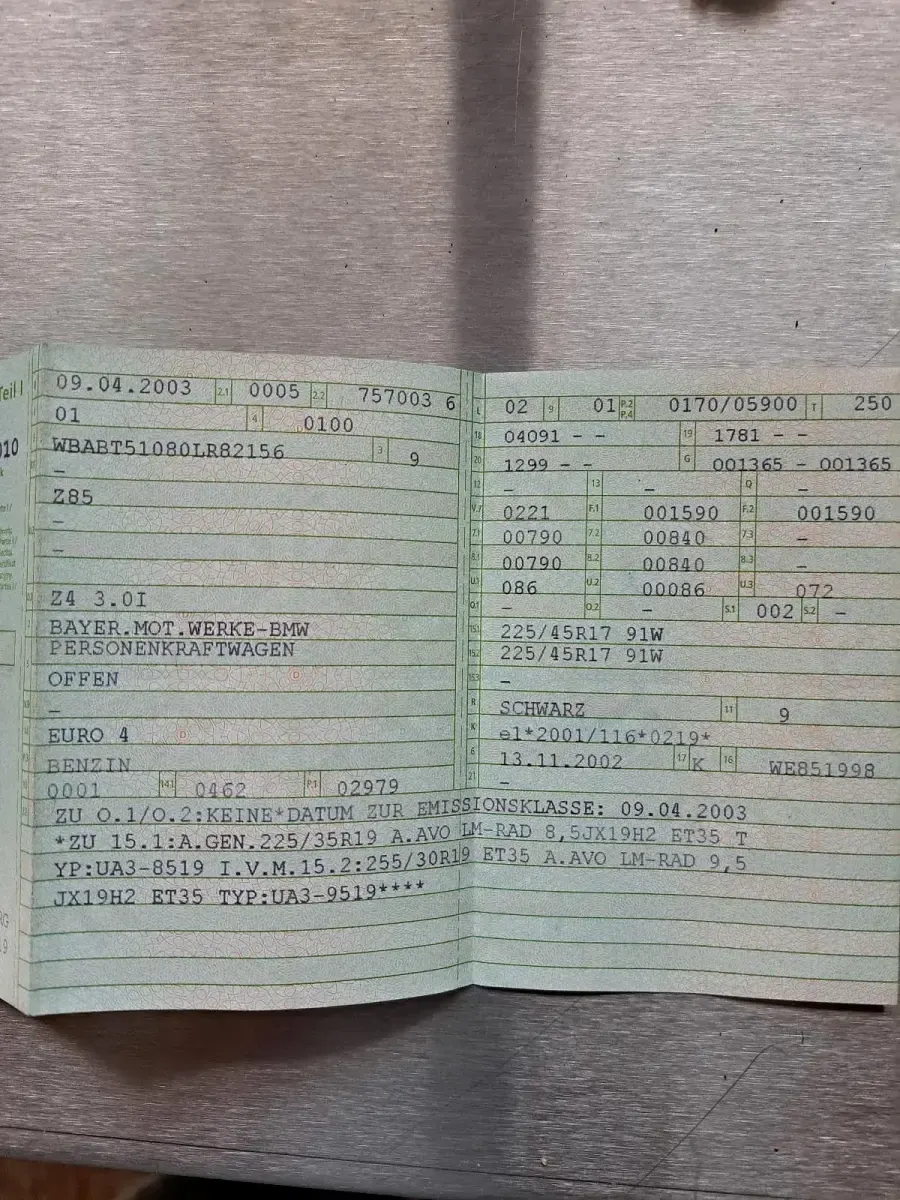 Teil I
09.04.2003 2.1 0005 2.2 757003 6
01 4 0100
WBABT51080LR82156 3 9
–
Z85
–
–
Z4 3.0I
BAYER.MOT.WERKE-BMW
PERSONENKRAFTWAGEN
OFFEN
–
EURO 4
BENZIN
0001 14.1 0462 P.1 02979
L 02 9 01 P.2 P.4 0170/05900 T 250
18 04091 – – 19 1781 – –
20 1299 – – G 001365 – 001365
12 – 13 – Q –
V.7 0221 F.1 001590 F.2 001590
7.1 00790 7.2 00840 7.3 –
8.1 00790 8.2 00840 8.3 –
U.1 086 U.2 00086 U.3 072
O.1 – O.2 – S.1 002 S.2 –
15.1 225/45R17 91W
15.2 225/45R17 91W
15.3 –
R SCHWARZ 11 9
K e1*2001/116*0219*
6 13.11.2002 17 K 16 WE851998
21 –
ZU O.1/O.2:KEINE*DATUM ZUR EMISSIONSKLASSE: 09.04.2003
*ZU 15.1:A.GEN.225/35R19 A.AVO LM-RAD 8,5JX19H2 ET35 T
YP:UA3-8519 I.V.M.15.2:255/30R19 ET35 A.AVO LM-RAD 9,5
JX19H2 ET35 TYP:UA3-9519****